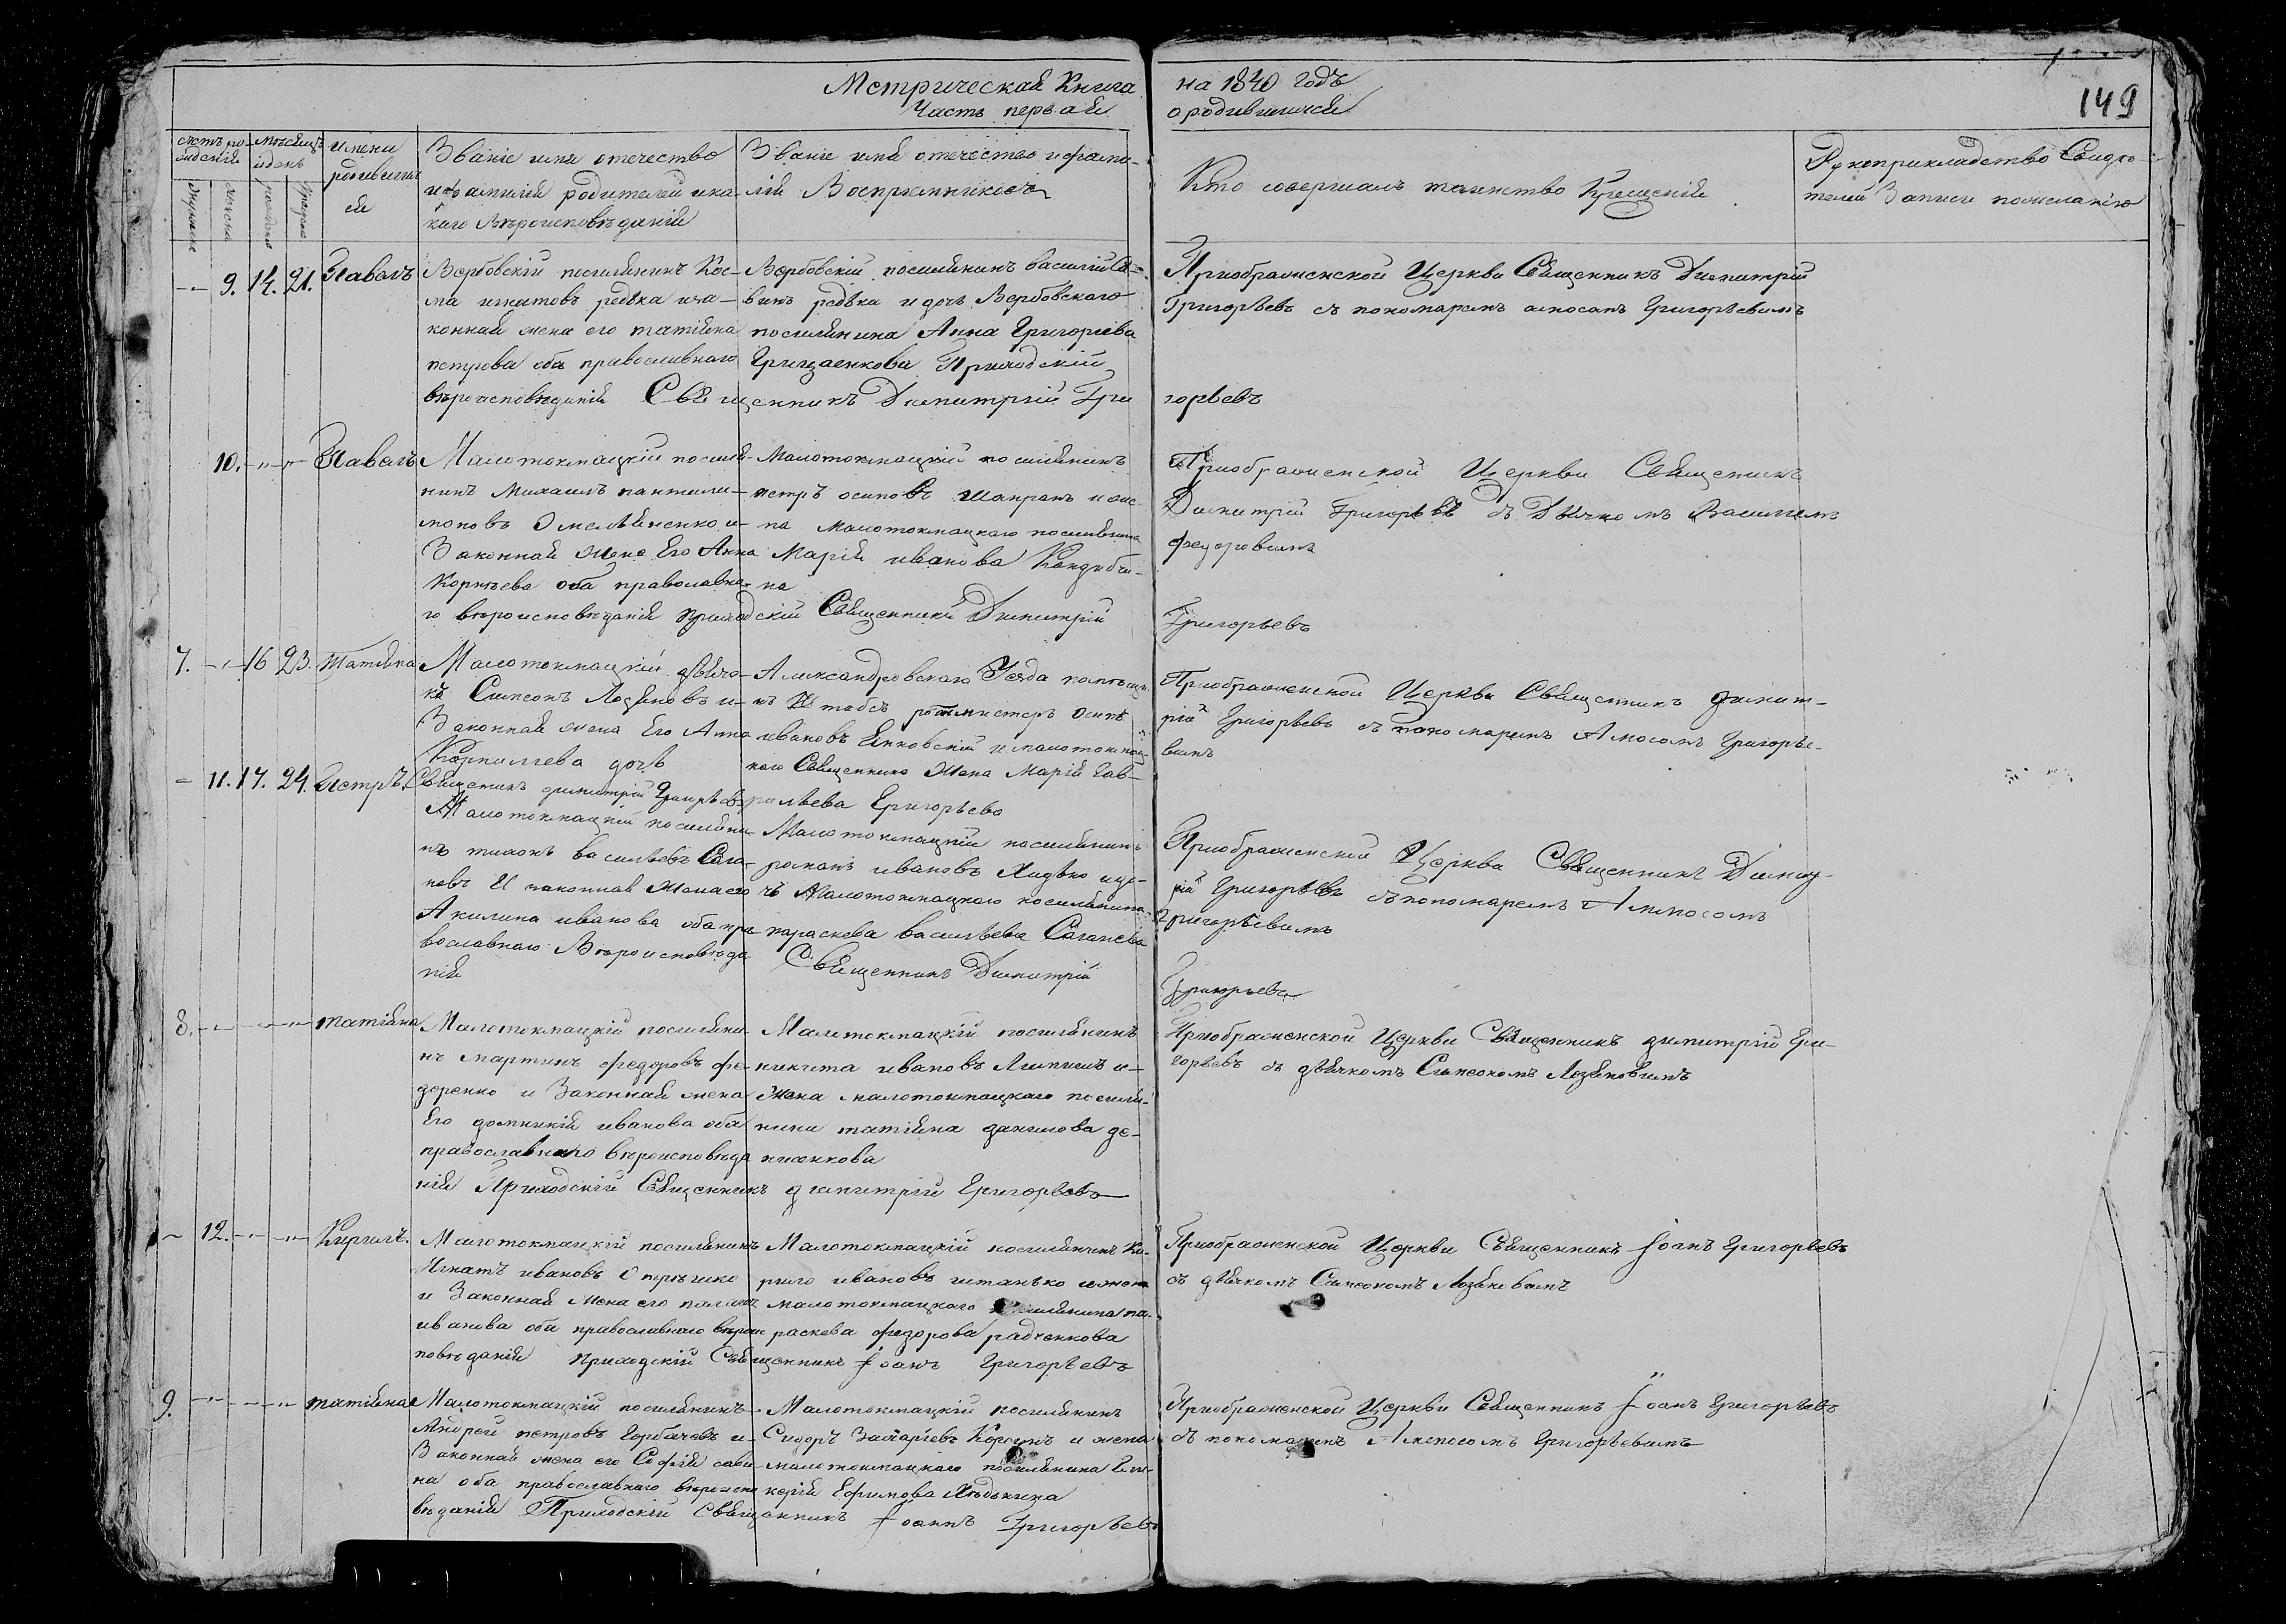 Метрическая Книга на 1840 годъ
Часть первая о родившихся
149
счетъ рожденій
мѣсяцъ и день
имена родившихся
Званіе имя отечество
и фамилія родителей и ка-
каго вѣроисповѣданія
Званіе имя отечество и фами-
лія Воспріемниковъ
Кто совершалъ таинство Крещенія
Рукоприкладство Свидѣ-
телей Записи по желанію
9. 14. 21. Павелъ
Вербовскій поселянинъ Кос-
ма игнатовъ редька и за-
конная жена его татіяна
петрова оба православнаго
вѣроисповѣданія
Вербовскій поселянинъ василій Са-
винъ редька и дочь Вербовскаго
поселянина Анна Григоріева
Грицаенкова Приходскій
Священникъ Димитрій Гри
горьевъ
Приображенской Церкви Священникъ Димитрій
Григорьевъ съ пономаремъ амосомъ Григорьевымъ
10. Павелъ
Малотокмацкій поселя-
нинъ Михаилъ пантили-
моновъ Омельяненко и
Законная жена Его Анна
Корнѣева оба православна-
го вѣроисповѣданія приходскій Священникъ Димитрій
Григорьевъ
Малотокмацкій поселянинъ
петръ осиповъ шапранъ и же-
на малотокмацкаго поселянина
Марія иванова
на
Приображенской Церкви Священникъ
Димитрій Григорьевъ съ Дьячкомъ Василіемъ
федоровымъ
7. 16 23. татіяна
Малотокмацкій дьячо-
къ Симеонъ Лозяновъ и
Законная жена Его Анна
Корнилева дочь
Священникъ димитрій Григорьевъ
Александровскаго Уезда помѣщи-
къ Штабсъ ротмистеръ Осипъ
ивановъ Янковскій и малотокмац-
каго Священника Жена Марія Гав-
рильева Григорьева
Приображенской Церкви Священникъ димит-
рій Григорьевъ съ пономаремъ Амосомъ Григорье-
вымъ
11. 17. 24. Петръ
Малотокмацкій поселяни-
нъ тихонъ васильевъ Сага-
новъ И законная Жена его
Акилина иванова оба пра-
вославнаго Вѣроисповѣда
нія
Малотокмацкій поселянинъ
романъ ивановъ Хидько и до-
чь Малотокмацкаго поселянина
параскева васильева Саганева
Священникъ Димитрій
Григорьевъ
Приображенской Церкви Священникъ Димит-
рій Григорьевъ съ пономаремъ Аммосомъ
Григорьевымъ
8. татіяна
Малотокмацкій поселяни-
нъ мартинъ федоровъ фе-
доренко и Законная жена
Его домникія иванова оба
православнаго вѣроисповѣда
нія Приходскій Священникъ димитрій Григорьевъ
Малотокмацкій поселянинъ
никита ивановъ и
Жена малотокмацкаго поселя-
нина татіяна данилова де-
нисенкова
Приображенской Церкви Священникъ димитрій Гри-
горьевъ съ дьячкомъ Симеономъ Лозяновымъ
12. Кирилъ.
Малотокмацкій поселянинъ
Игнатъ ивановъ
и Законная жена его
иванова оба православнаго вѣроис
повѣданія приходскій Священникъ Іоанъ Григорьевъ
Малотокмацкій поселянинъ Ки-
рило ивановъ и жена
малотокмацкаго поселянина па-
раскева федорова радченкова
Приображенской Церкви Священникъ Іоанъ Григорьевъ
съ дьячкомъ Симеономъ Лозяновымъ
9. татіяна
Малотокмацкій поселянинъ
Андрей петровъ Горбачевъ и
Законная жена его Софія сави-
на оба православнаго вѣроиспо
вѣданія Приходскій Священникъ Іоаннъ Григорьевъ
Малотокмацкій поселянинъ
Сидоръ Захаріевъ и жена
малотокмацкаго поселянина Гли-
керія Ефимова
Приображенской Церкви Священникъ Іоанъ Григорьевъ
съ пономаремъ Аммосомъ Григорьевымъ